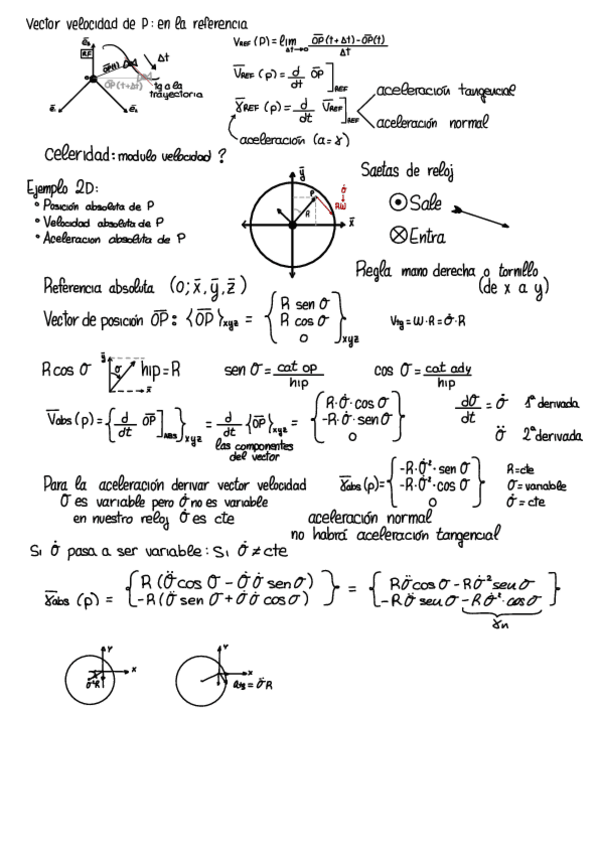 Vector velocidad de P: en la referencia
V̄REF (P) = lim Δt→0 [OP(t+Δt) - OP(t)] / Δt
REF
OP(t)
Δt
OP(t+Δt)
tg a la trayectoria
V̄REF (p) = d/dt OP ]REF
γ̄REF (p) = d/dt V̄REF ]REF
aceleración tangencial
aceleración normal
aceleración (a=γ)
celeridad: modulo velocidad ?
Ejemplo 2D:
• Posición absoluta de P
• Velocidad absoluta de P
• Aceleracion absoluta de P
ȳ
P
R
x̄
Saetas de reloj
⊙ Sale
⊗ Entra
Regla mano derecha o tornillo
(de x a y)
Referencia absoluta (O; x̄, ȳ, z̄)
Vector de posición OP: {OP}xyz = { R sen σ
R cos σ
0 }xyz
Vtg = W·R = σ̇·R
R cos σ
hip = R
sen σ = cat op / hip
cos σ = cat ady / hip
V̄abs (p) = { d/dt OP ]ABS }xyz = d/dt {OP}xyz = { R·σ̇·cos σ
-R·σ̇·sen σ
0 }
las componentes del vector
dσ/dt = σ̇ 1ª derivada
σ̈ 2ª derivada
Para la aceleración derivar vector velocidad
σ es variable pero σ̇ no es variable
en nuestro reloj σ̇ es cte
γ̄abs (p) = { -R·σ̇²·sen σ
-R·σ̇²·cos σ
0 }
R=cte
σ=variable
σ̇=cte
aceleración normal
no habrá aceleración tangencial
Si σ̇ pasa a ser variable: Si σ̇ ≠ cte
γ̄abs (p) = { R(σ̈ cos σ - σ̇ σ̇ sen σ)
-R(σ̈ sen σ + σ̇ σ̇ cos σ) } = { Rσ̈ cos σ - Rσ̇² sen σ
-Rσ̈ sen σ - Rσ̇²·cos σ }
γn
Y
X
σ̇²R
Y
X
= σ̈R